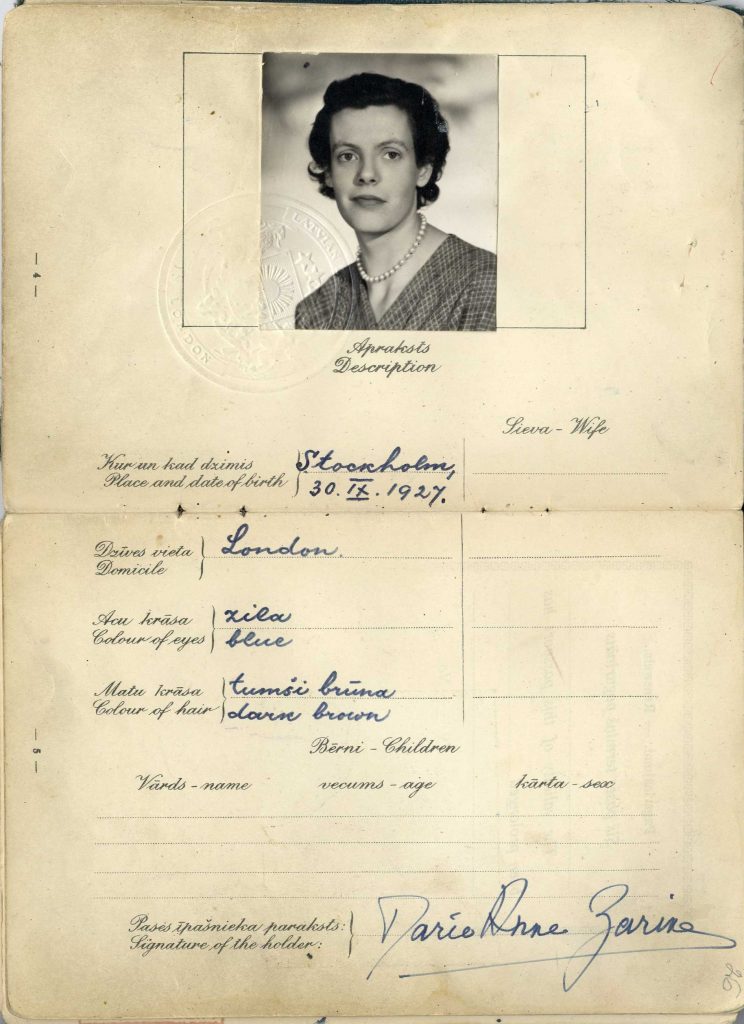 LATVIAN
LONDON
— 4 —
Apraksts
Description
Sieva - Wife
Kur un kad dzimis
Place and date of birth
Stockholm,
30. IX. 1927.
Dzīves vieta
Domicile
London.
Acu krāsa
Colour of eyes
zila
blue
Matu krāsa
Colour of hair
tumši brūna
dark brown
— 5 —
Bērni - Children
Vārds - name vecums - age kārta - sex
Pases īpašnieka paraksts:
Signature of the holder:
Marie Anne Zarine
26